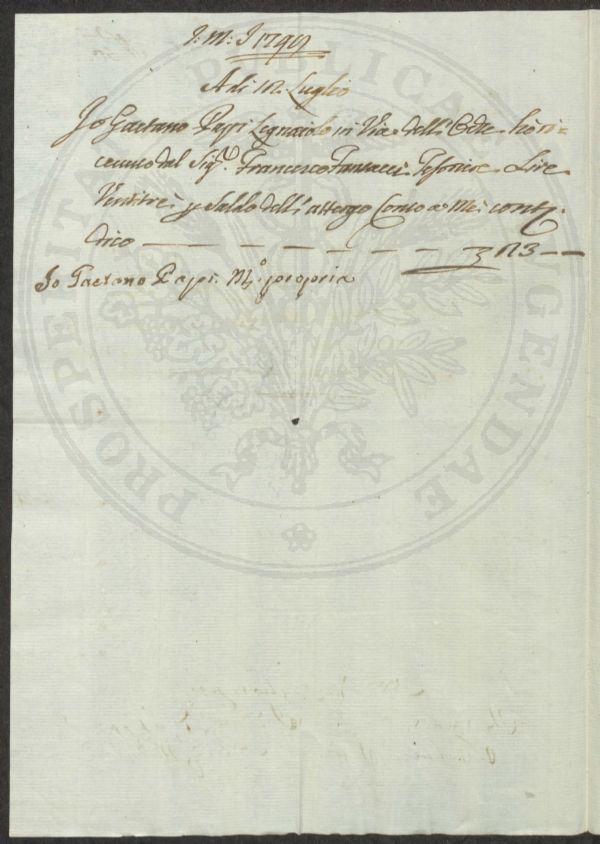 J: M: J 1799
A di 12. Luglio
Io Gaetano Pappi Legnaiolo in Via dell'Oche hò ri=
ceuuto dal Sig.r Francesco Tesoriere Lire
Ventitrè p Saldo dell'attergo Conto a Mè cont
tico 23
Io Gaetano Papi. M.o propria
PROSPERITATI PUBLICAE AUGENDAE